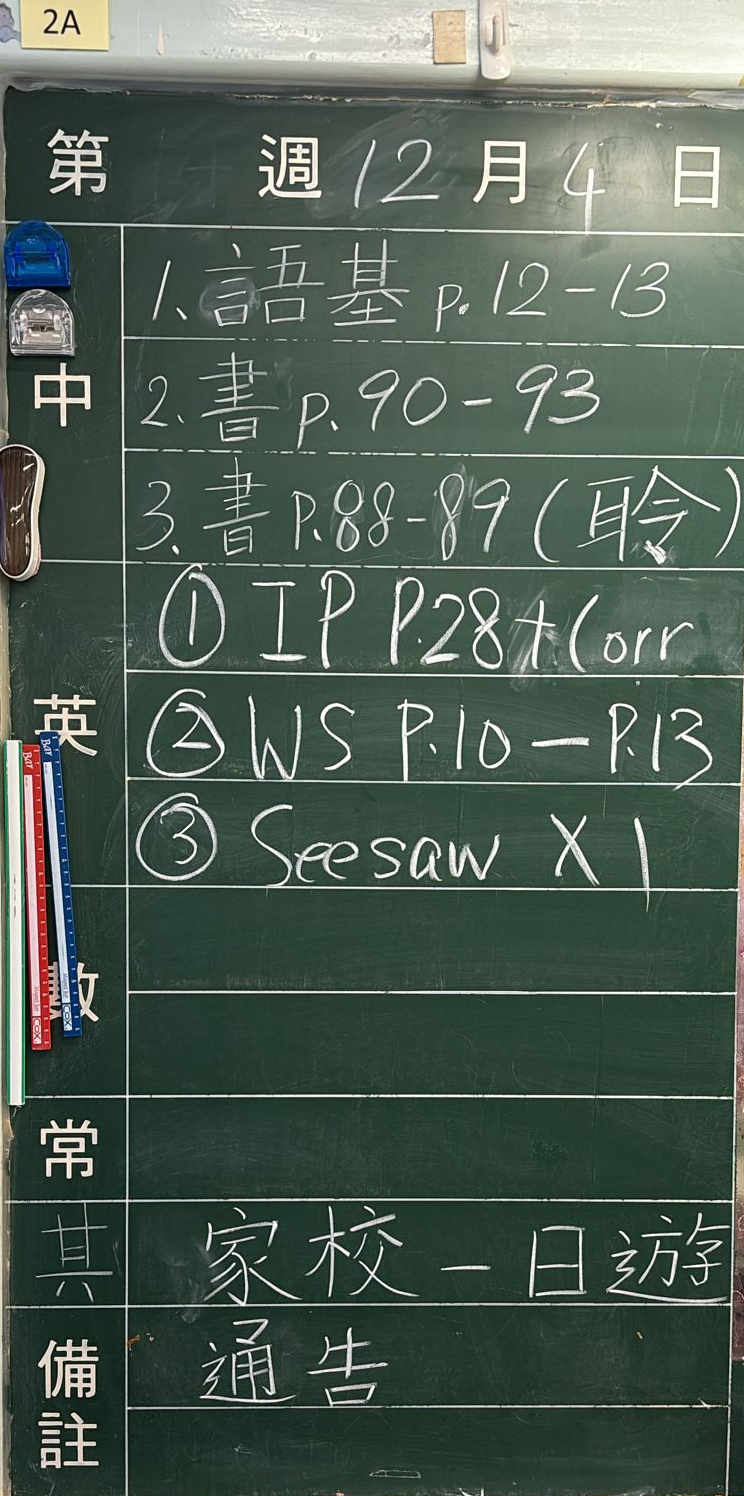 2A
第 週 12 月 4 日
中
1. 語基 p. 12-13
2. 書 p. 90-93
3. 書 P.88-89 (聆)
英
① IP P.28+Corr
② WS P.10-P.13
③ Seesaw X 1
數
常
其 家校一日遊
備註 通告